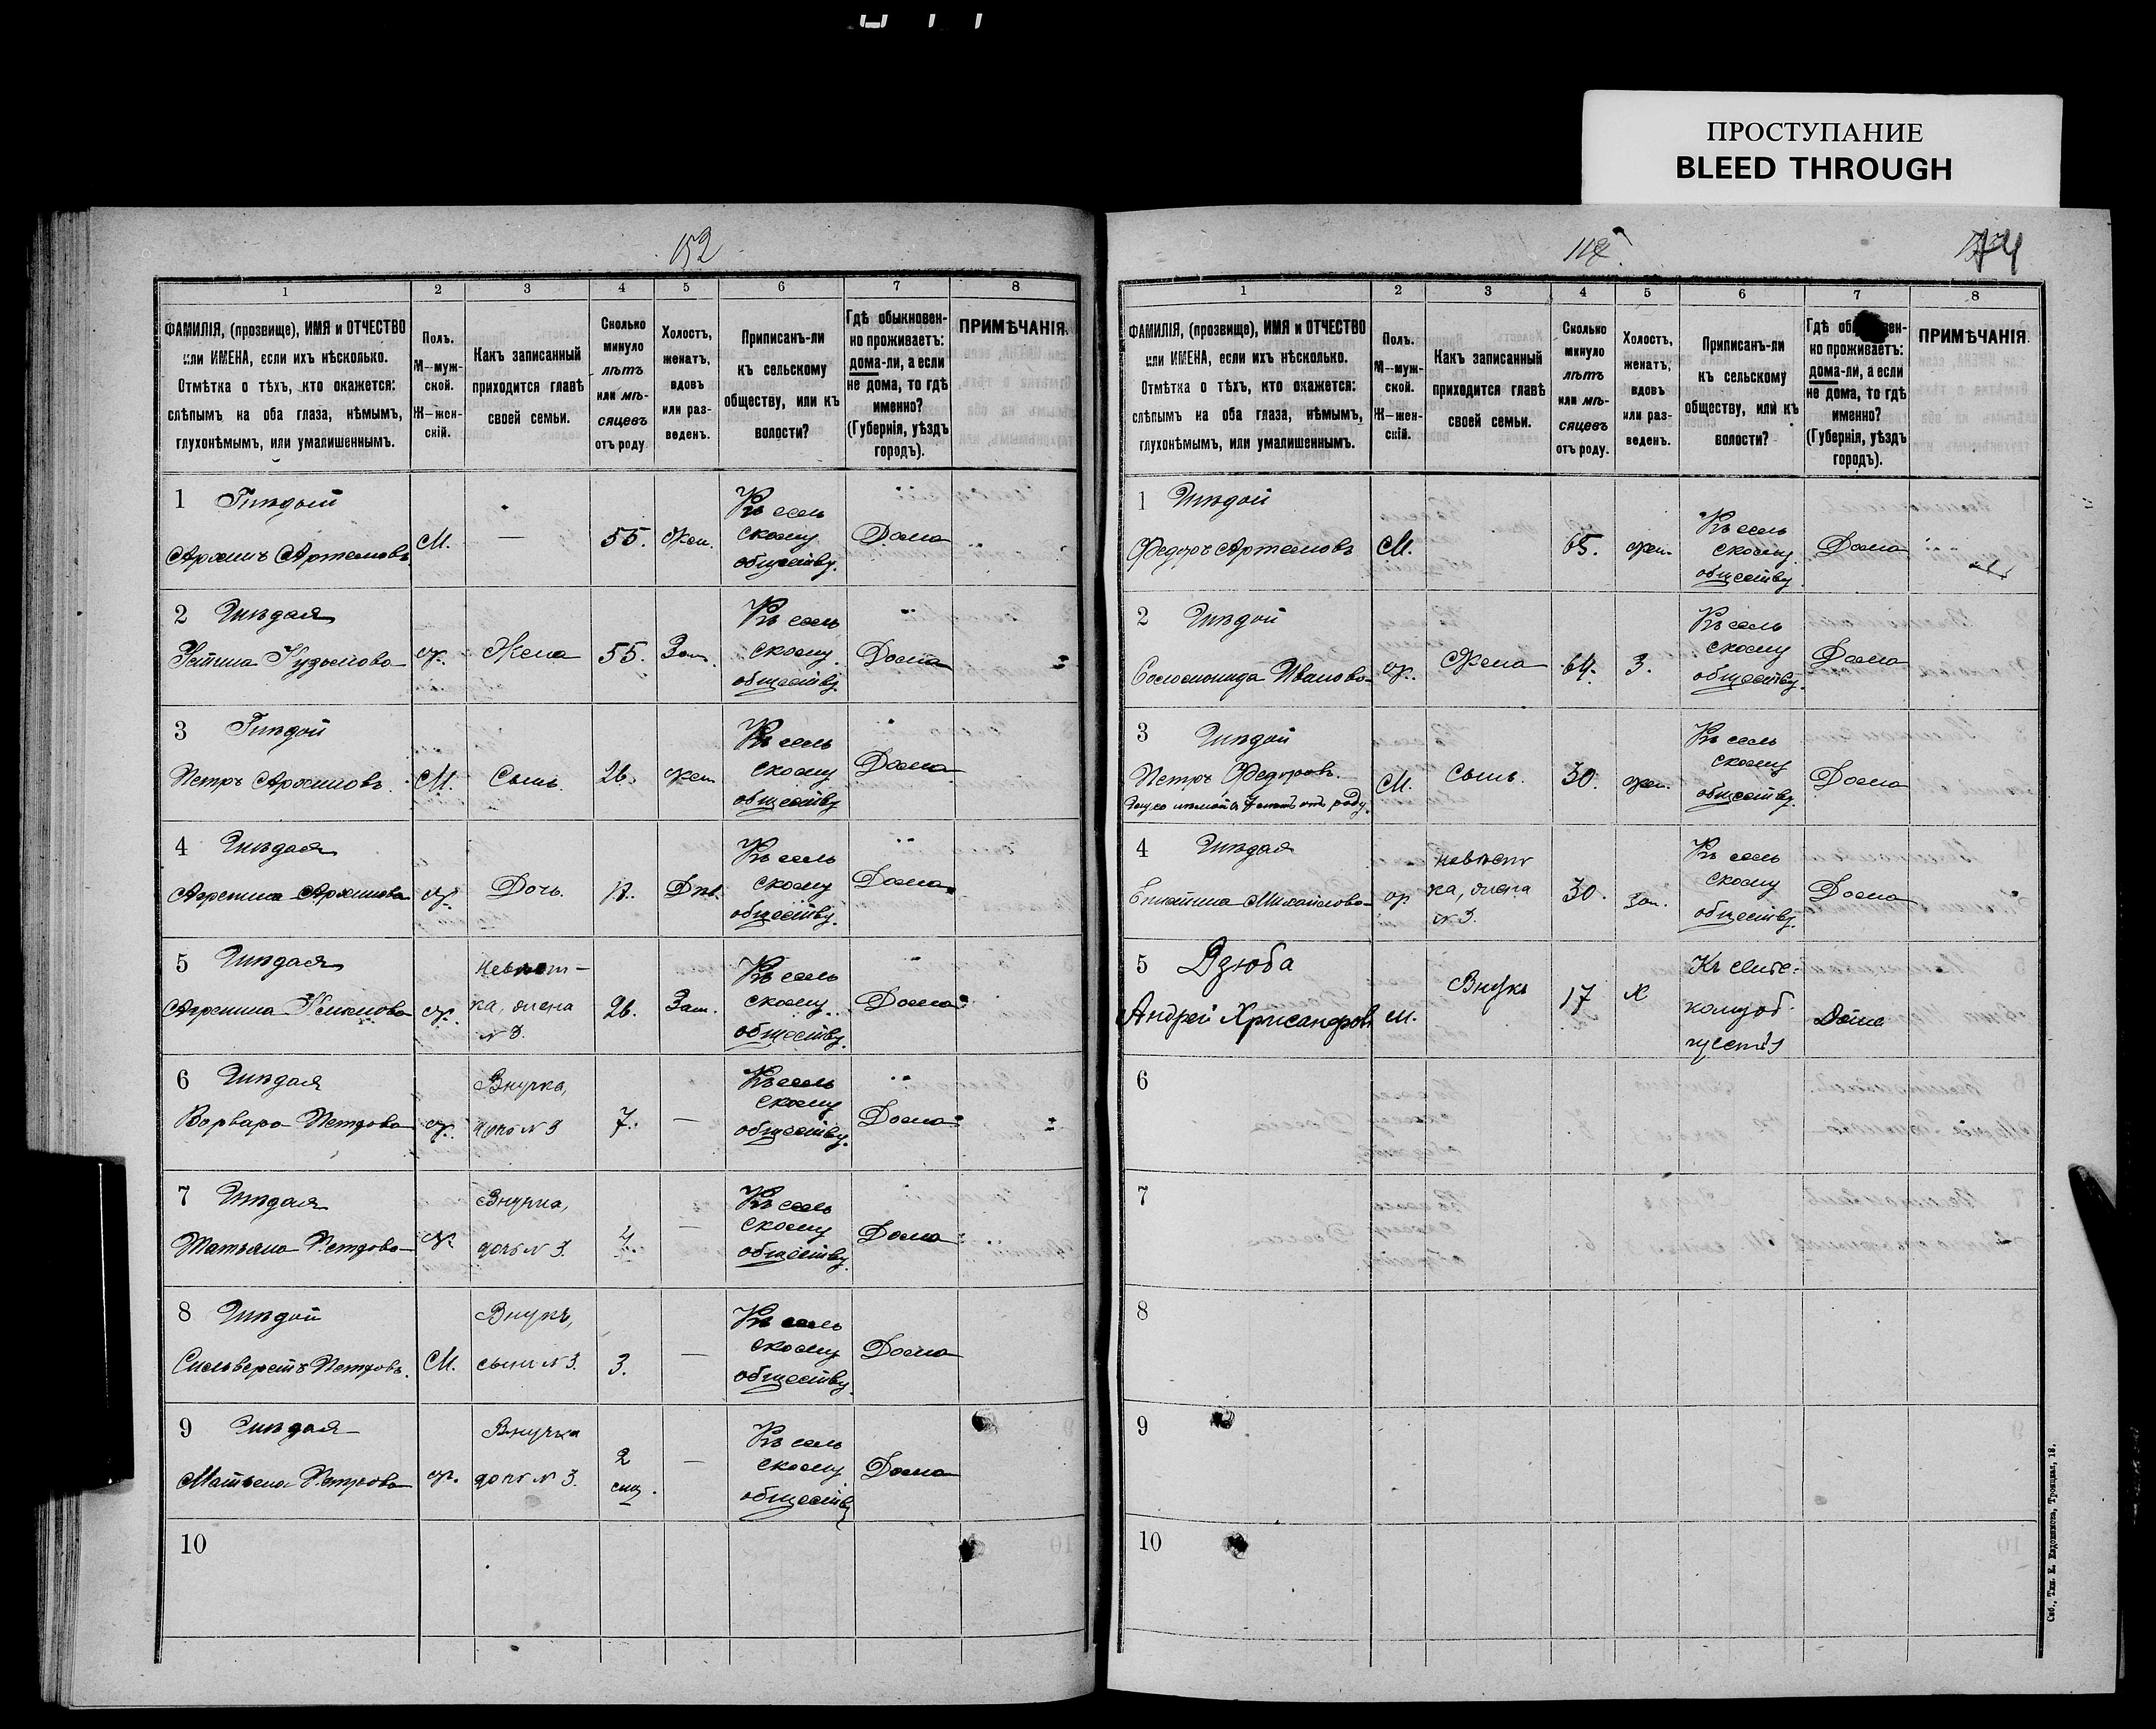 ПРОСТУПАНИЕ
BLEED THROUGH
152
1 2 3 4 5 6 7 8
ФАМИЛІЯ, (прозвище), ИМЯ и ОТЧЕСТВО
или ИМЕНА, если ихъ нѣсколько.
Отмѣтка о тѣхъ, кто окажется:
слѣпымъ на оба глаза, нѣмымъ,
глухонѣмымъ, или умалишеннымъ.
Полъ.
М—муж-
ской.
Ж—жен-
скій.
Какъ записанный
приходится главѣ
своей семьи.
Сколько
минуло
лѣтъ
или мѣ-
сяцевъ
отъ роду.
Холостъ,
женатъ,
вдовъ
или раз-
веденъ.
Приписанъ-ли
къ сельскому
обществу, или къ
волости?
Гдѣ обыкновен-
но проживаетъ:
дома-ли, а если
не дома, то гдѣ
именно?
(Губернія, уѣздъ
городъ).
ПРИМѢЧАНІЯ.
1 Гнѣдый
Архипъ Артемовъ М. — 55. Жен.
Къ сель
скому
обществу.
Дома
2 Гнѣдая
Устина Кузьмова ж. Жена 55. Зам.
Къ сель
скому
обществу.
Дома
3 Гнѣдой
Петръ Архиповъ. М. Сынъ. 26. жен
Къ сель
скому
обществу
Дома
4 Гнѣдая
Агрепина Архипова ж. Дочь. Дѣв.
Къ сель
скому
обществу.
Дома
5 Гнѣдая
Агрепина ж.
невѣст-
ка, жена
№ 3.
26. Зам.
Къ сель
скому
обществу.
Дома
6 Гнѣдая
Варвара Петрова ж.
Внучка,
дочь № 3
7. —
Къ сель
скому
обществу.
Дома
7 Гнѣдая
Татьяна Петрова ж.
Внучка,
дочь № 3.
4. —
Къ сель
скому
обществу.
Дома
8 Гнѣдой
Сильверстъ Петровъ. М.
Внукъ,
сынъ № 3.
3. —
Къ сель
скому
обществу.
Дома
9 Гнѣдая
Петрова ж.
Внучка
дочь № 3.
2
—
Къ сель
скому
обществу
Дома
10
74
1 2 3 4 5 6 7 8
ФАМИЛІЯ, (прозвище), ИМЯ и ОТЧЕСТВО
или ИМЕНА, если ихъ нѣсколько.
Отмѣтка о тѣхъ, кто окажется:
слѣпымъ на оба глаза, нѣмымъ,
глухонѣмымъ, или умалишеннымъ.
Полъ.
М—муж-
ской.
Ж—жен-
скій.
Какъ записанный
приходится главѣ
своей семьи.
Сколько
минуло
лѣтъ
или мѣ-
сяцевъ
отъ роду.
Холостъ,
женатъ,
вдовъ
или раз-
веденъ.
Приписанъ-ли
къ сельскому
обществу, или къ
волости?
Гдѣ обыкновен-
но проживаетъ:
дома-ли, а если
не дома, то гдѣ
именно?
(Губернія, уѣздъ
городъ).
ПРИМѢЧАНІЯ.
1 Гнѣдой
Федоръ Артемовъ М. 65. жен.
Къ сель
скому
обществу
Дома
2 Гнѣдой
Соломонида Иванова ж. Жена 64. З.
Къ сель
скому
обществу.
Дома
3 Гнѣдой
Петръ Федоровъ.
М. Сынъ. 30. жен.
Къ сель
скому
обществу.
Дома
4 Гнѣдая
Михайлова ж
невѣст
ка, жена
№ 3.
30. зам.
Къ сель
скому
обществу.
Дома
5 Дзюба
Андрей Хрисанфовъ м. Внукъ 17 Х
Къ сельс-
кому об-
ществу
Дома
6
7
8
9
10
Спб., Тип. Е. Евдокимова, Троицкая, 18.